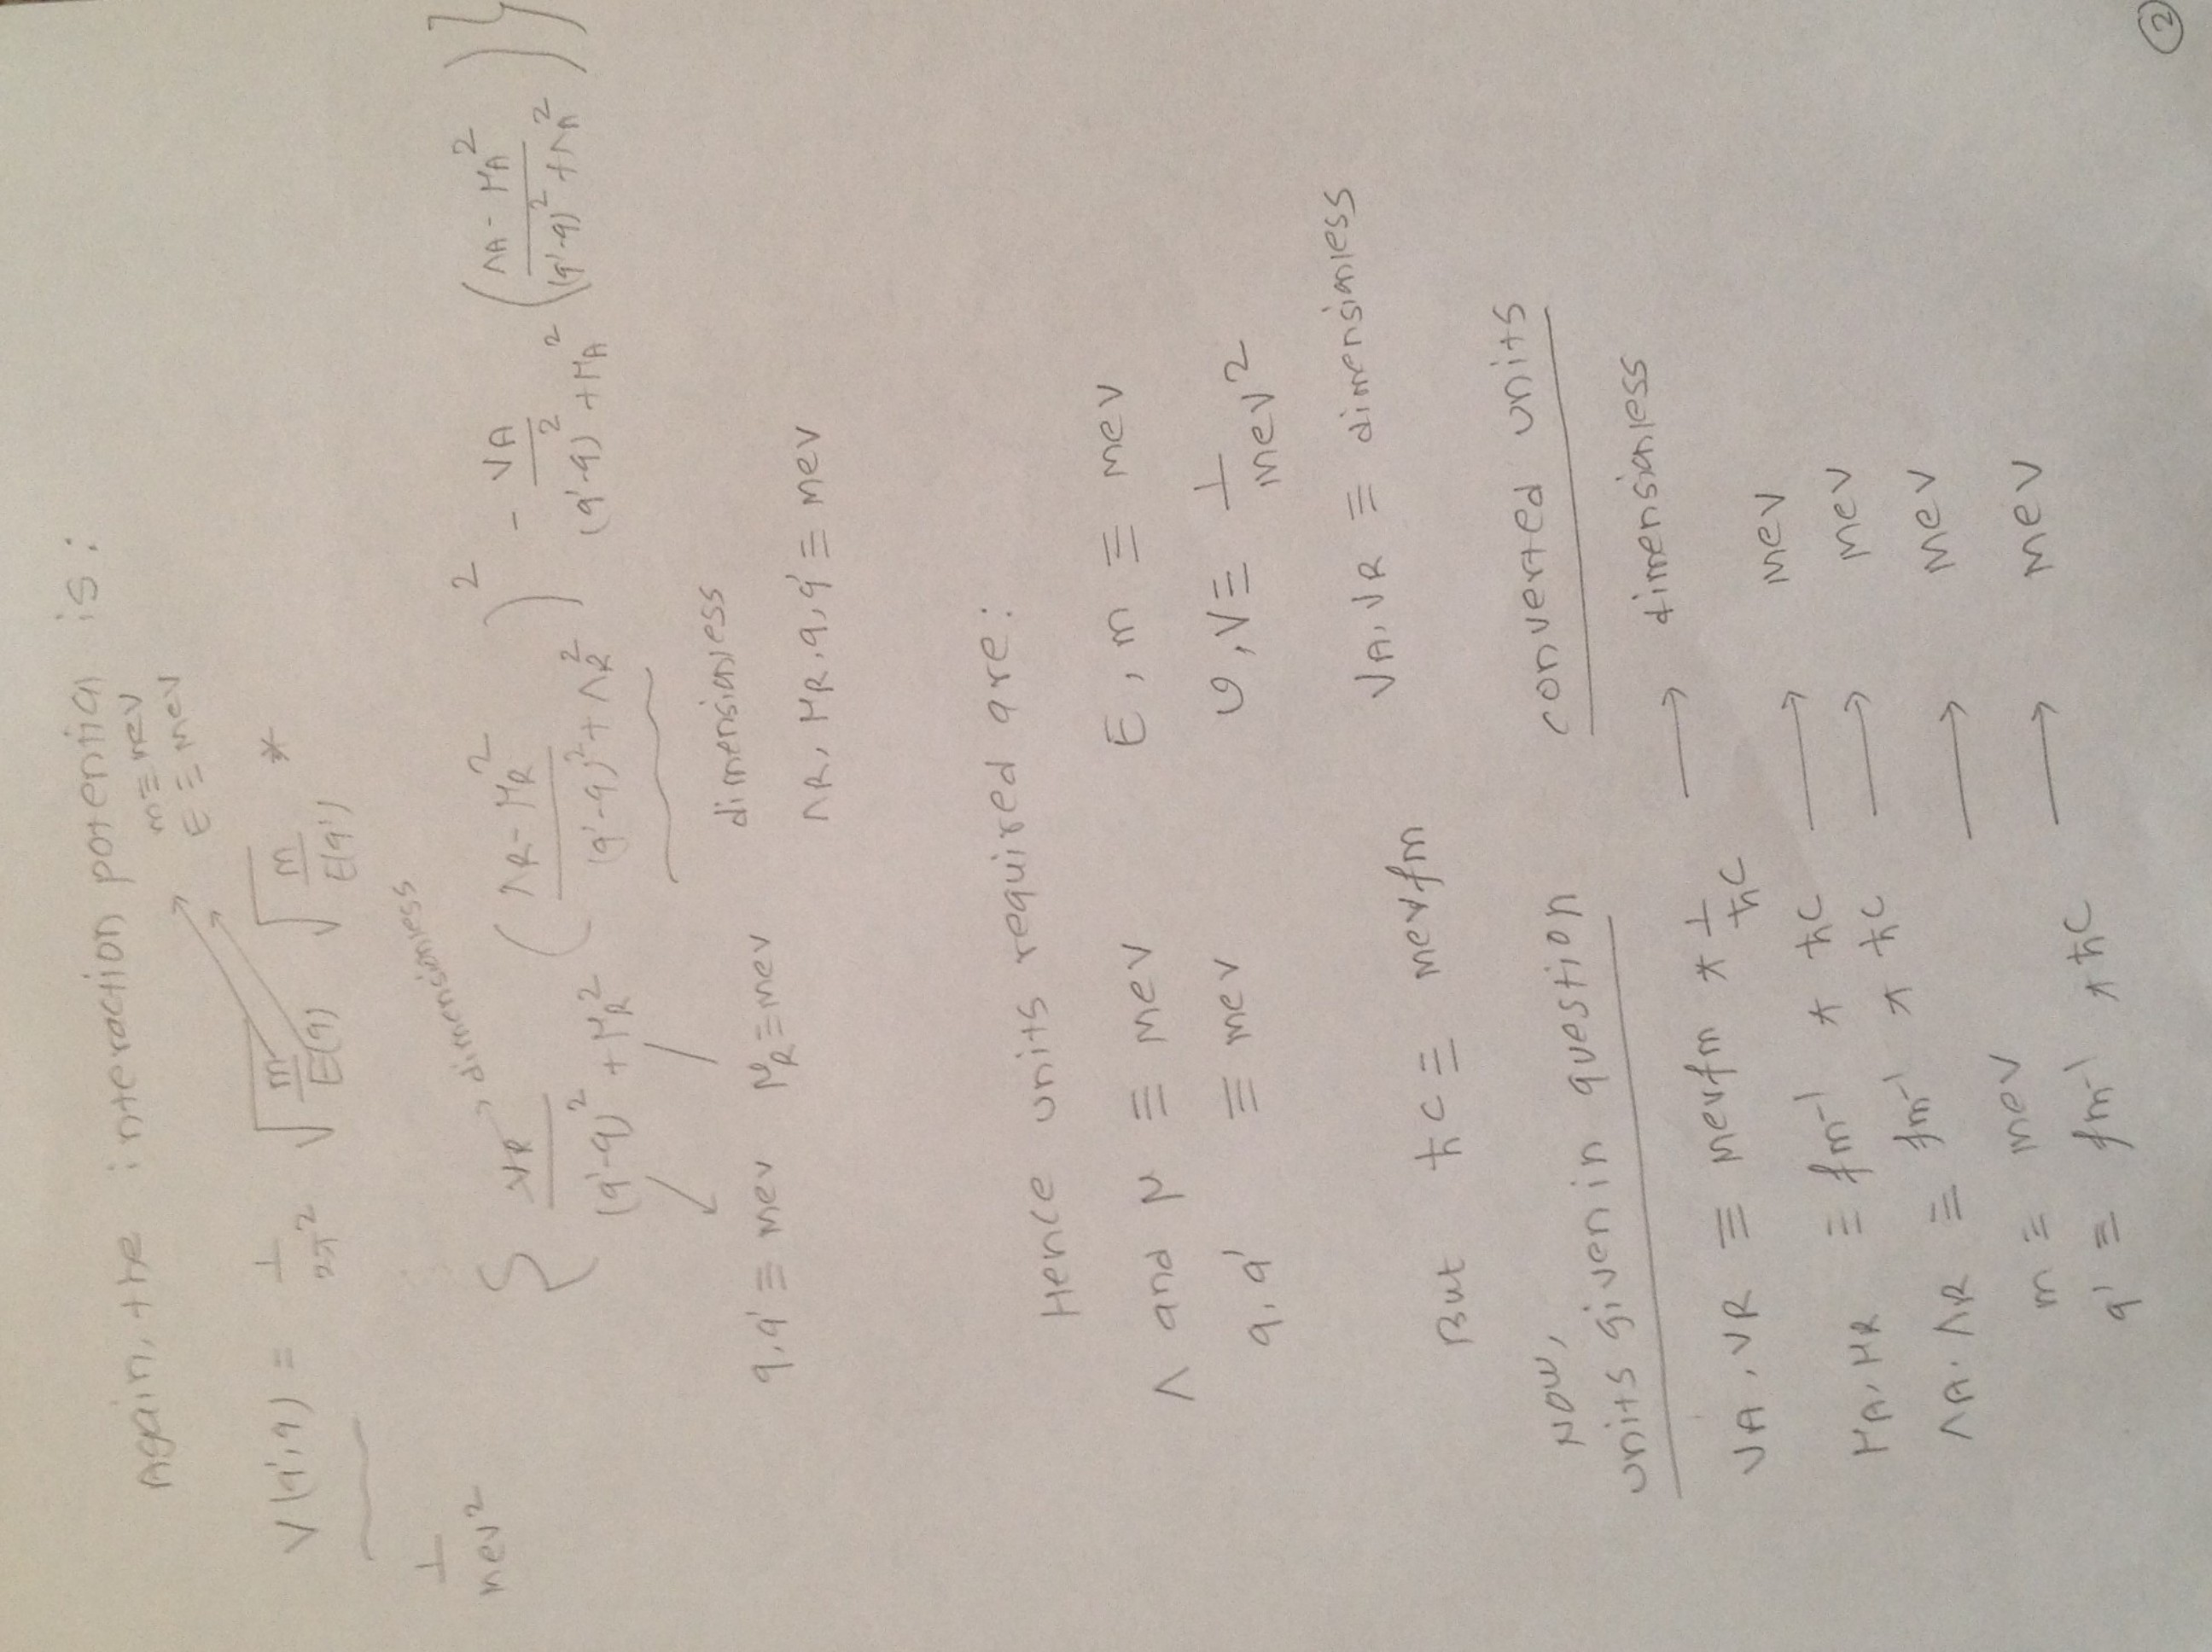 Again, the interaction potential is:
m ≡ mev
E ≡ mev
V(q',q) = 1/2π² √(m/E(q)) √(m/E(q')) *
1/mev²
→ dimensionless
{ VR/((q'-q)² + μR²) ((ΛR - μR²)/((q'-q)² + ΛR²))² - VA/((q'-q)² + μA²) ((ΛA - μA²)/((q'-q)² + ΛA²)) }
q,q' ≡ mev μR ≡ mev dimensionless
ΛR, μR, q, q' ≡ mev
Hence units required are:
Λ and μ ≡ mev E, m ≡ mev
q, q' ≡ mev v, V ≡ 1/mev²
VA, VR ≡ dimensionless
But ħc ≡ mevfm
Now,
units given in question converted units
VA, VR ≡ mevfm * 1/ħc → dimensionless
μA, μR ≡ fm⁻¹ * ħc → mev
ΛA, ΛR ≡ fm⁻¹ * ħc → mev
m ≡ mev → mev
q' ≡ fm⁻¹ * ħc → mev
2